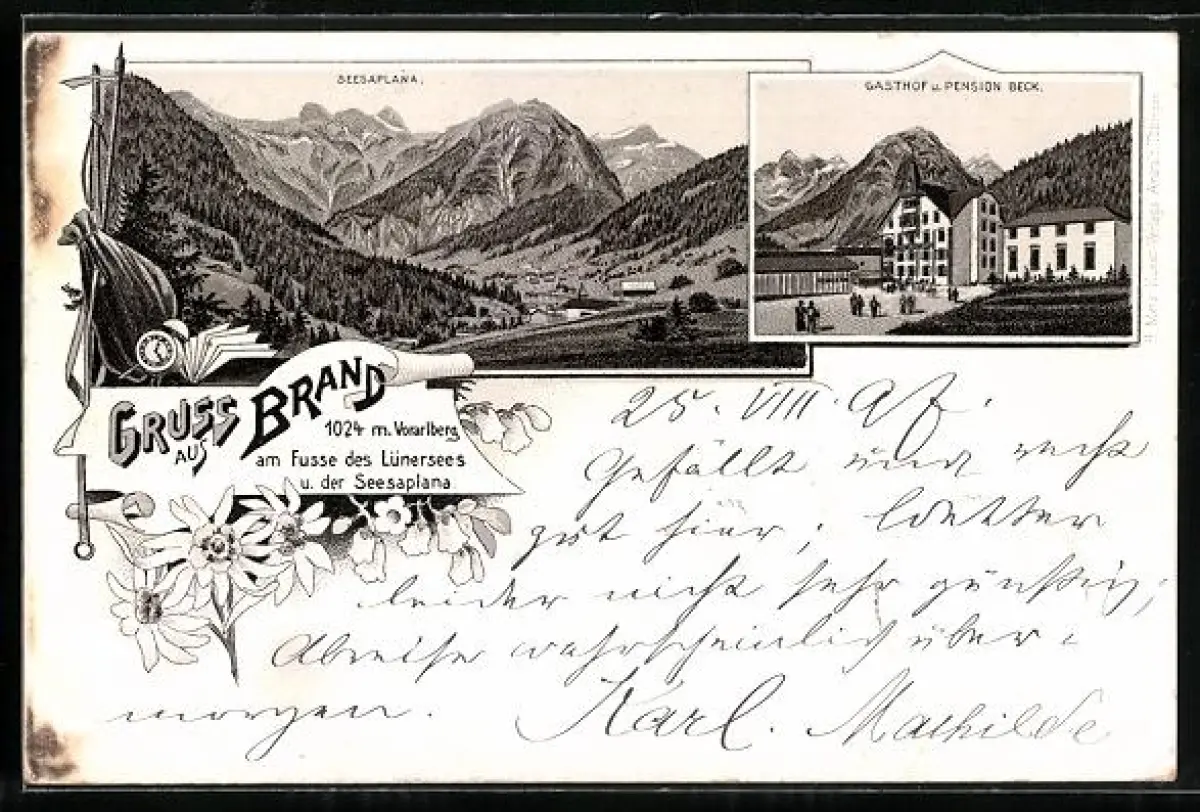 SEESAPLANA.
GASTHOF u. PENSION BECK.
GRUSS AUS BRAND
1024 m. Vorarlberg
am Fusse des Lünersees
u. der Seesaplana
25. VIII. 97.
Gefällt uns recht
gut hier; Wetter
leider nicht sehr günstig,
Abreise wahrscheinlich über-
morgen. Karl. Mathilde